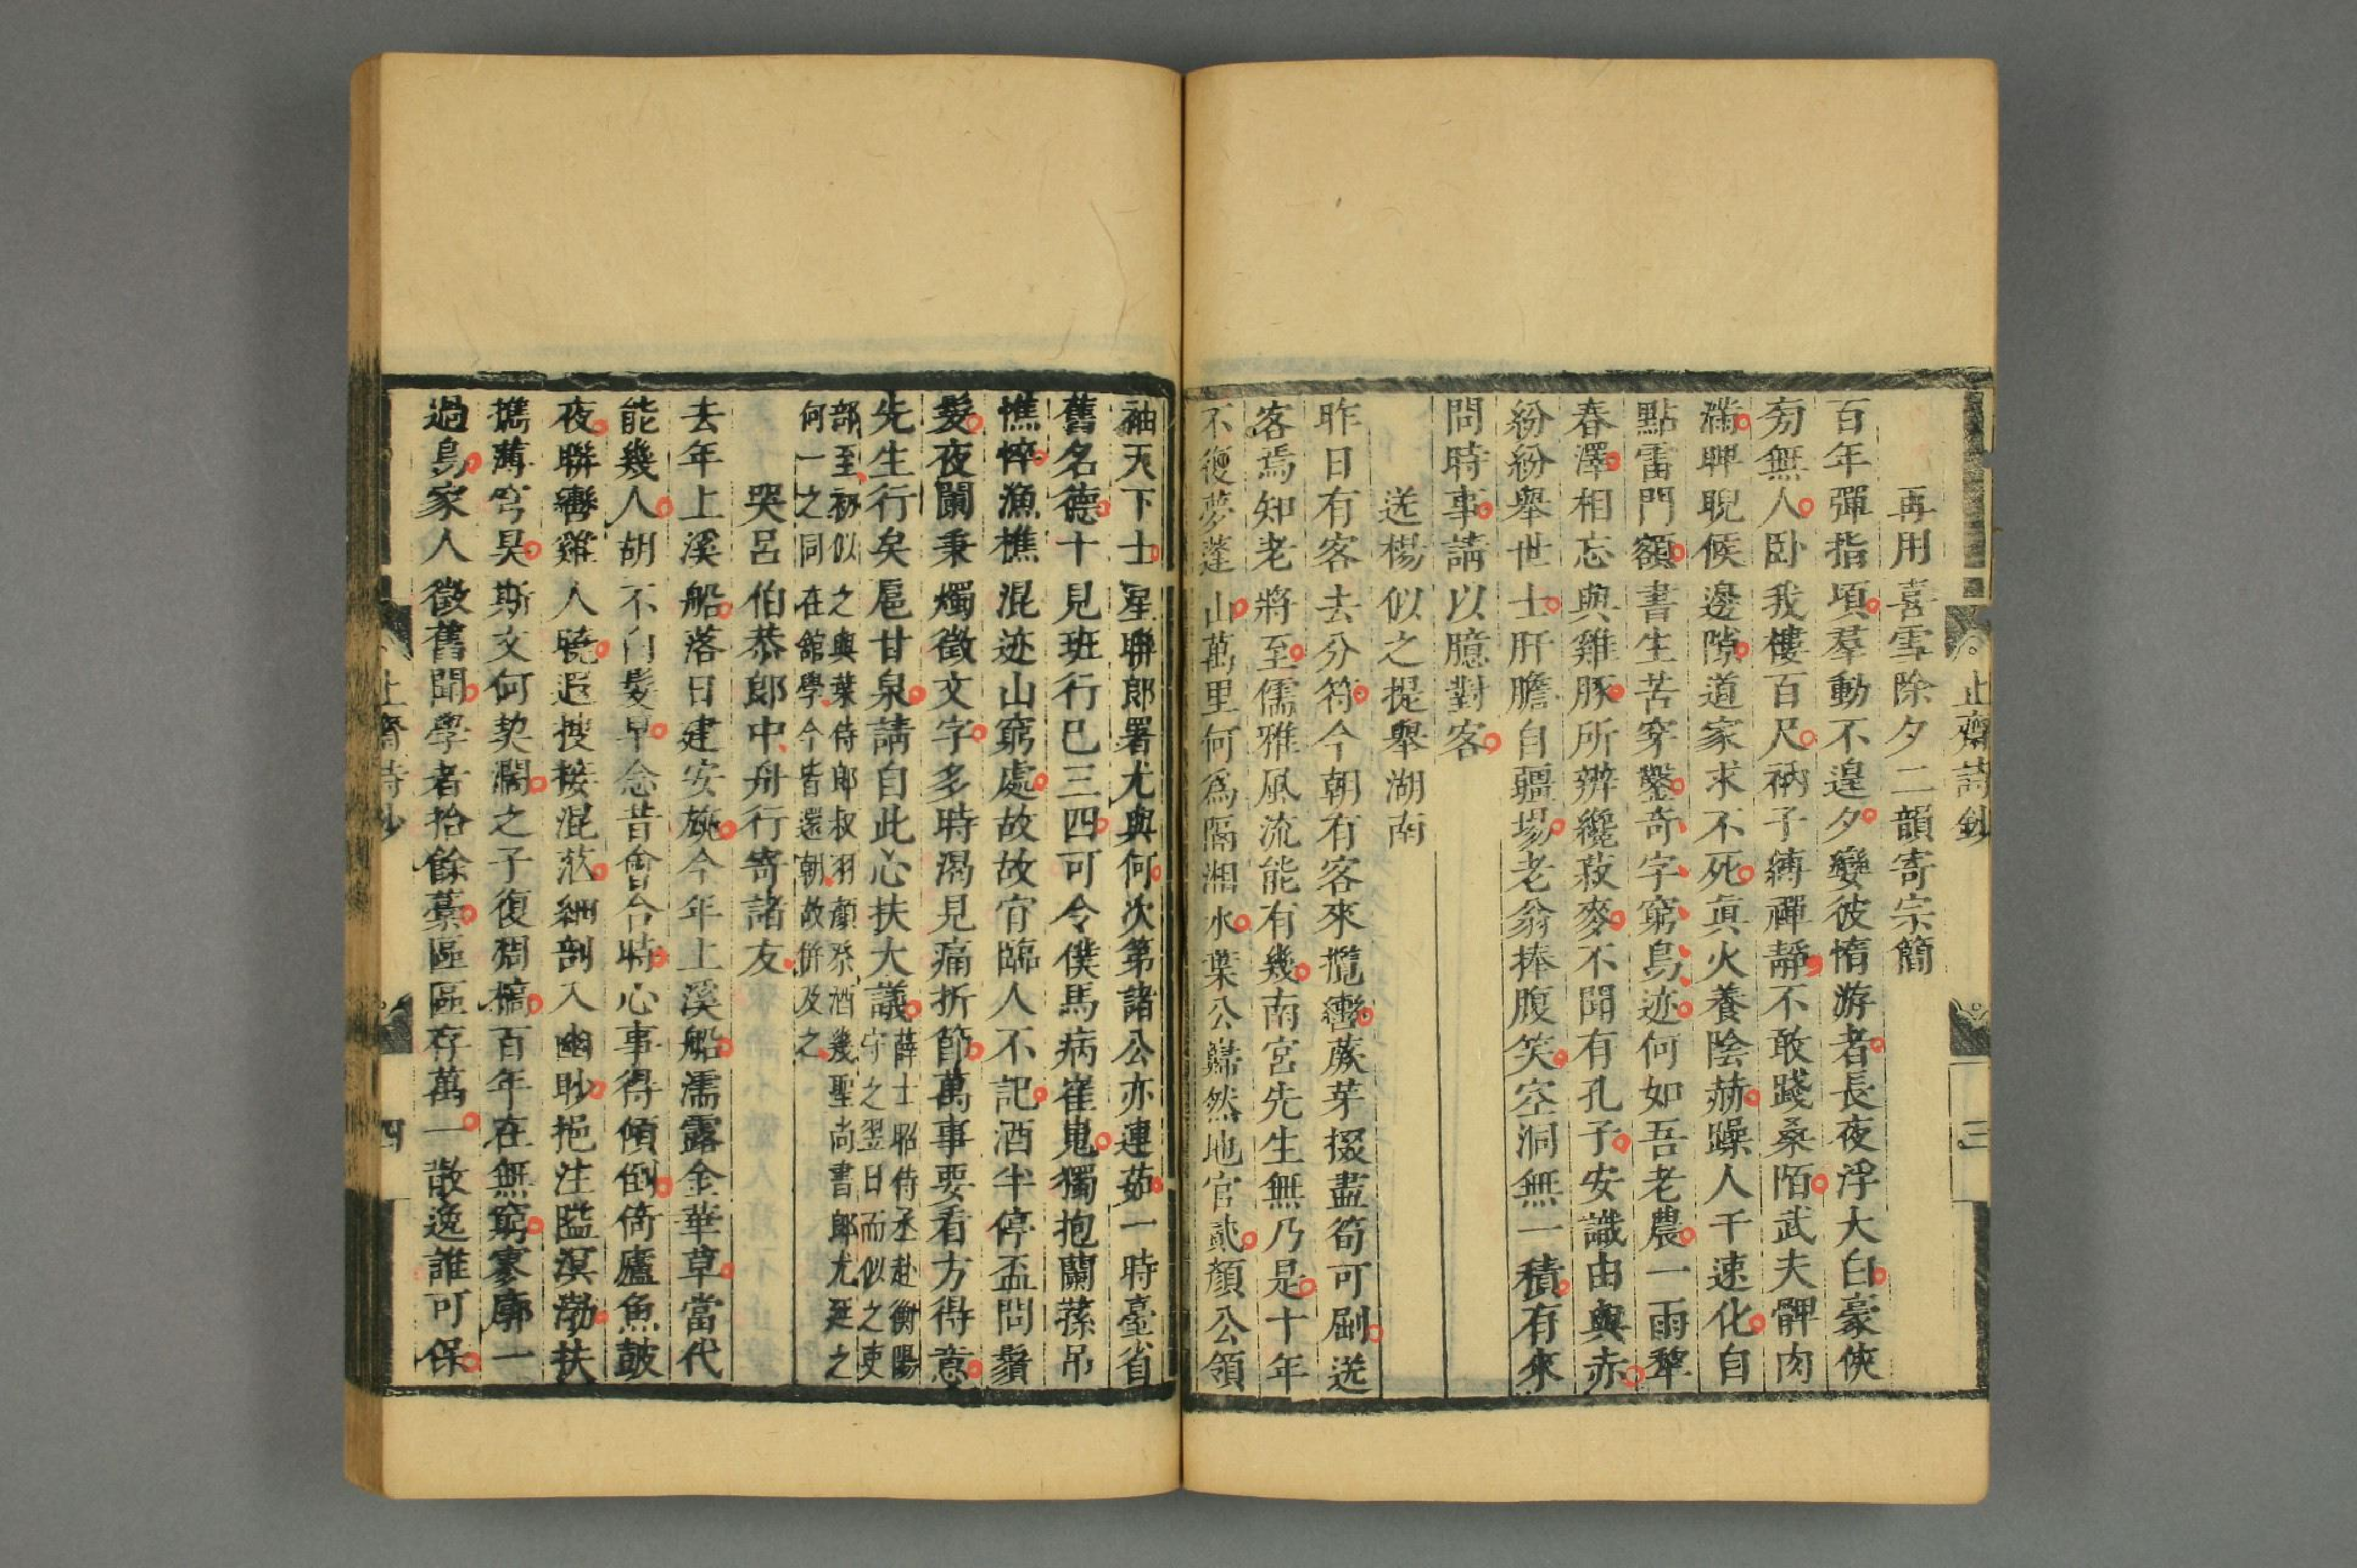 止齋詩鈔
三
再用喜雪除夕二韻寄宗簡
百年彈指頃羣動不遑夕孌彼惰游者長夜浮大白豪俠
旁無人卧我樓百尺衲子縛禪靜不敢踐桑陌武夫髀肉
滿睥睨候邊隙道家求不死真火養陰赫躁人干速化自
點雷門額書生苦穿鑿奇字窮鳥迹何如吾老農一雨犂
春澤相忘與雞豚所辨纔菽麥不聞有孔子安識由與赤
紛紛舉世士肝膽自疆場老翁捧腹笑空洞無一積有來
問時事請以臆對客
送楊似之提舉湖南
昨日有客去分符今朝有客來攬轡蕨芽掇盡筍可刷送
客焉知老將至儒雅風流能有幾南宮先生無乃是十年
不復夢蓬山萬里何爲隔湘水葉公歸然地官貳顏公領
袖天下士星聯郎署尤與何次第諸公亦連茹一時臺省
舊名德十見班行巳三四可令僕馬病崔嵬獨抱蘭蓀吊
憔悴漁樵混迹山窮處故故官臨人不記酒半停盃問鬚
髮夜闌秉燭徵文字多時渴見痛折節萬事要看方得意
先生行矣扈甘泉請自此心扶大議薛士昭侍丞赴衡陽
守之翌日而似之吏
部至初似之與葉侍郎叔羽顏祭酒幾聖尚書郎尤延之
何一之同在館學今皆還朝故併及之
哭呂伯恭郎中舟行寄諸友
去年上溪船落日建安旐今年上溪船濡露金華草當代
能幾人胡不白髮早念昔會合時心事得傾倒倚廬魚鼓
夜聯轡雞人曉遐搜接混茫細剖入幽眇挹注隘溟渤扶
攜薄穹昊斯文何契濶之子復稠槁百年在無窮寥廓一
過鳥家人徵舊聞學者拾餘藁區區存萬一散逸誰可保
止齋詩鈔
四